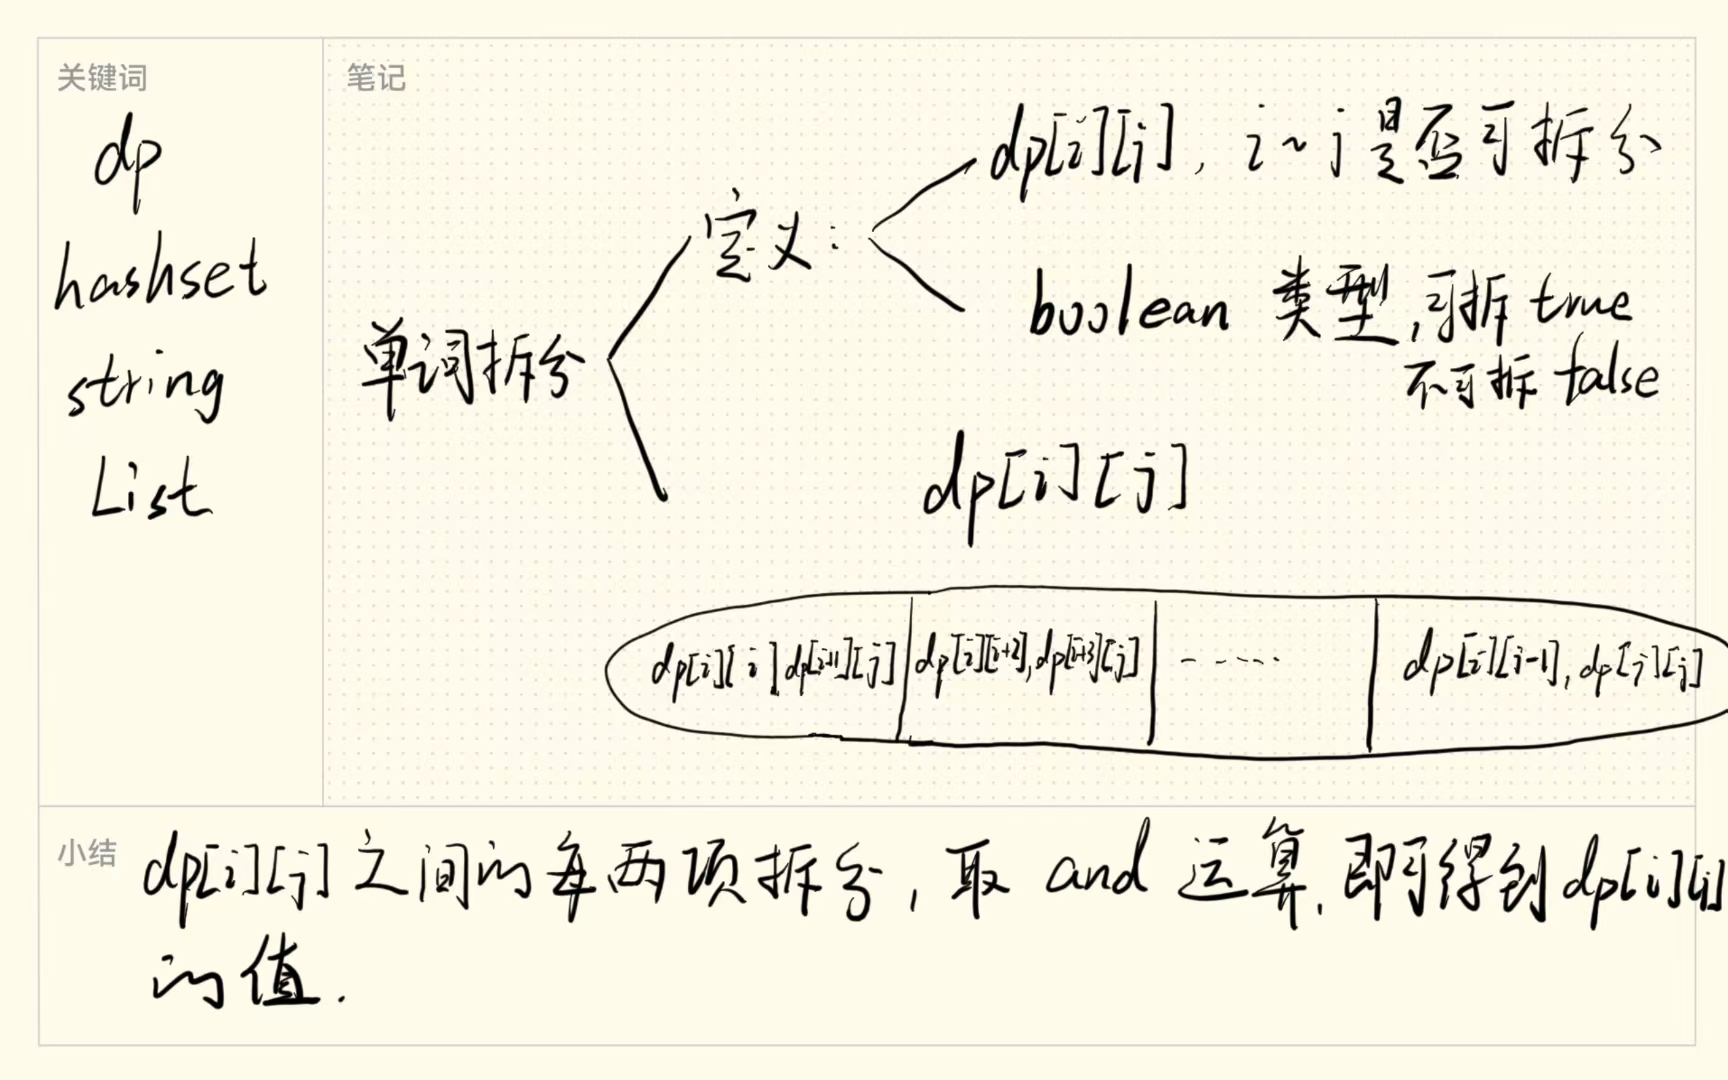 关键词
dp
hashset
string
List
笔记
dp[i][j], i~j是否可拆分
定义:
boolean 类型,可拆 true
不可拆 false
单词拆分
dp[i][j]
dp[i][i] dp[i+1][j] dp[i][i+2], dp[i+3][j] ...... dp[i][j-1], dp[j][j]
小结
dp[i][j]之间的每两项拆分, 取 and 运算, 即可得到dp[i][j]
的值.